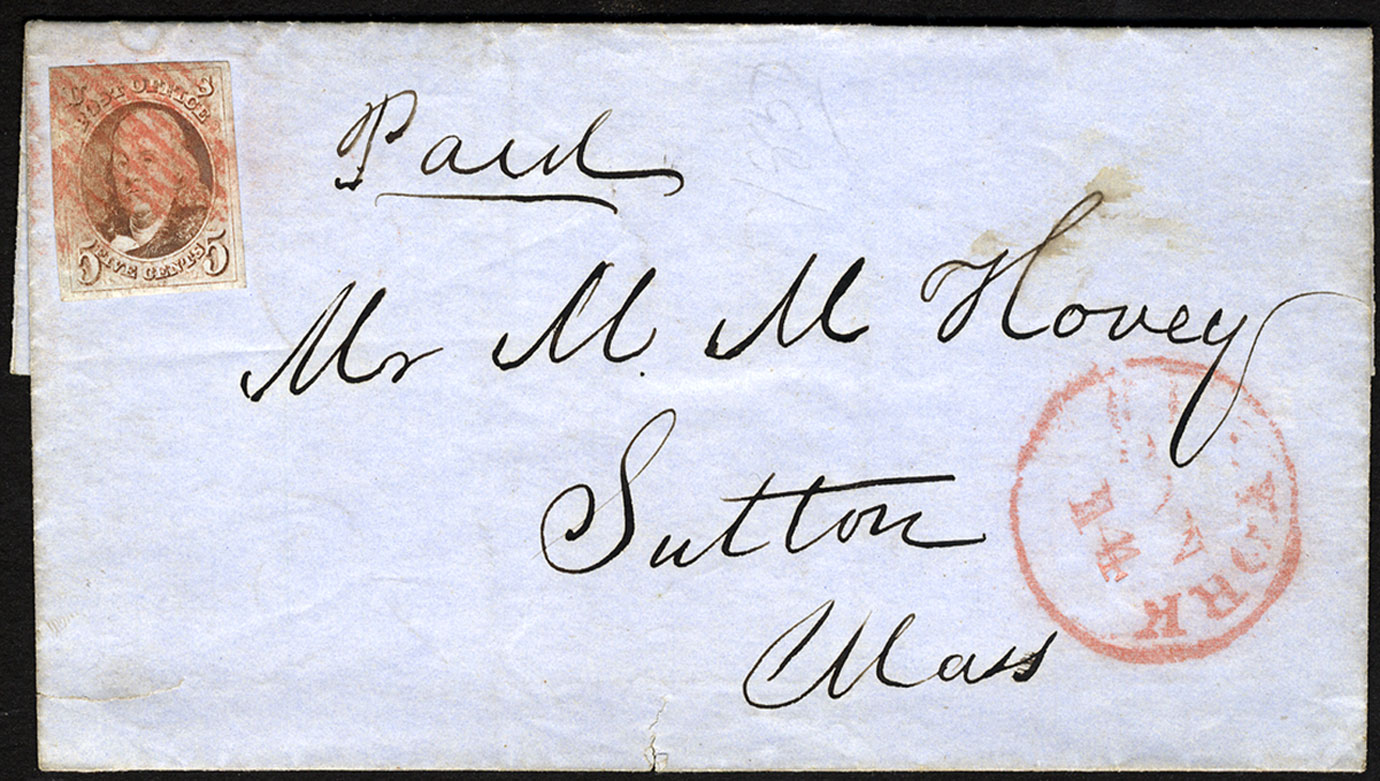 U S
POST OFFICE
5 FIVE CENTS 5
Paid
Mr M. M Hovey
Sutton
Mass
YORK